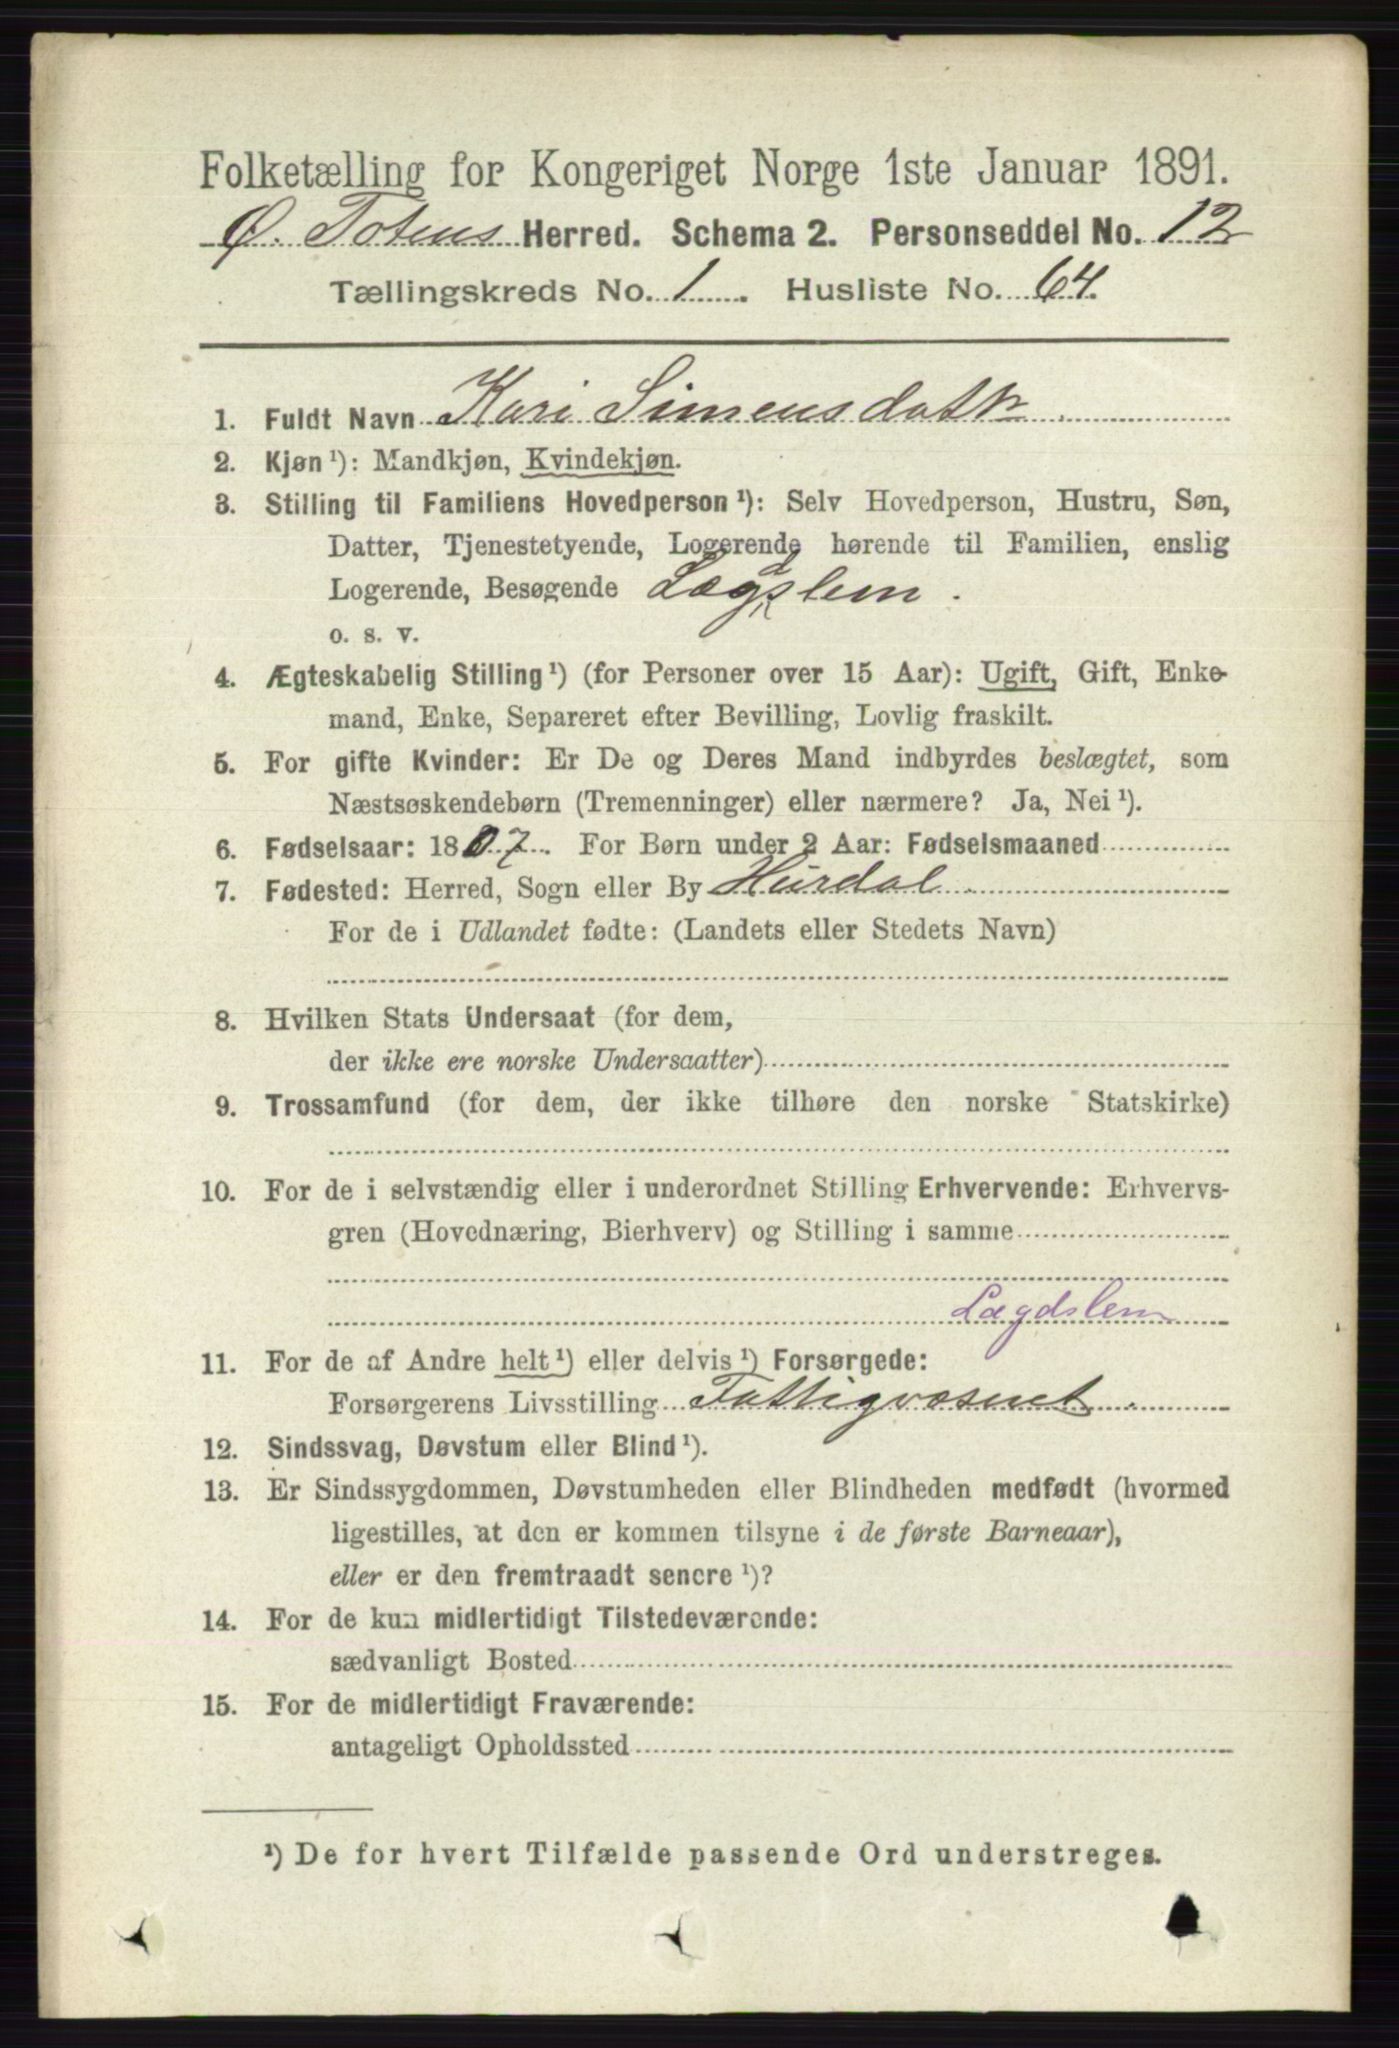 Folketælling for Kongeriget Norge 1ste Januar 1891.
Ø. Totens Herred. Schema 2. Personseddel No. 12
Tællingskreds No. 1. Husliste No. 64.
1. Fuldt Navn Kari Simensdattr
2. Kjøn¹): Mandkjøn, Kvindekjøn.
3. Stilling til Familiens Hovedperson¹): Selv Hovedperson, Hustru, Søn,
Datter, Tjenestetyende, Logerende hørende til Familien, enslig
Logerende, Besøgende Lægdslem.
o. s. v.
4. Ægteskabelig Stilling¹) (for Personer over 15 Aar): Ugift, Gift, Enke-
mand, Enke, Separeret efter Bevilling, Lovlig fraskilt.
5. For gifte Kvinder: Er De og Deres Mand indbyrdes beslægtet, som
Næstsøskendebørn (Tremenninger) eller nærmere? Ja, Nei¹).
6. Fødselsaar: 1807. For Børn under 2 Aar: Fødselsmaaned
7. Fødested: Herred, Sogn eller By Hurdal
For de i Udlandet fødte: (Landets eller Stedets Navn)
8. Hvilken Stats Undersaat (for dem,
der ikke ere norske Undersaatter)
9. Trossamfund (for dem, der ikke tilhøre den norske Statskirke)
10. For de i selvstændig eller i underordnet Stilling Erhvervende: Erhvervs-
gren (Hovednæring, Bierhverv) og Stilling i samme
Lægdslem
11. For de af Andre helt¹) eller delvis¹) Forsørgede:
Forsørgerens Livsstilling Fattigvæsenet
12. Sindssvag, Døvstum eller Blind¹).
13. Er Sindssygdommen, Døvstumheden eller Blindheden medfødt (hvormed
ligestilles, at den er kommen tilsyne i de første Barneaar),
eller er den fremtraadt senere¹)?
14. For de kun midlertidigt Tilstedeværende:
sædvanligt Bosted
15. For de midlertidigt Fraværende:
antageligt Opholdssted
¹) De for hvert Tilfælde passende Ord understreges.